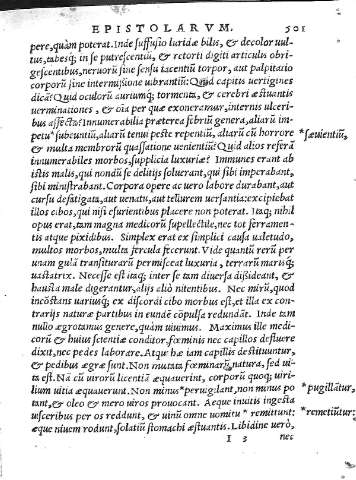 EPISTOLARVM. 501
pere, quàm poterat. Inde suffusio luridæ bilis, & decolor vul-
tus, tabesq; in se putrescentiũ, & retorti digiti articulis obri-
gescentibus, neruorũ sine sensu iacentiũ torpor, aut palpitatio
corporũ sine intermissione uibrantiũ: Quid capitis uertigines
dicã? Quid oculorũ auriumq; tormenta, & cerebri æstuantis
uerminationes, & oĩa per quæ exoneramur, internis ulceri
bus affecta? Innumerabilia præterea febriũ genera, aliarũ im-
petu *subeuntiũ, aliarũ tenui peste repentiũ, aliarũ cũ horrore *sæuientiũ,
& multa membrorũ quassatione uenientiũ? Quid alios referã
innumerabiles morbos, supplicia luxuriæ? Immunes erant ab
istis malis, qui nondũ se delitijs soluerant, qui sibi imperabant,
sibi ministrabant. Corpora opere ac uero labore durabant, aut
cursu defatigata, aut uenatu, aut tellurem uersantia: excipiebat
illos cibos, qui nisi esurientibus placere non poterat. Itaq; nihil
opus erat, tam magna medicorũ supellectile, nec tot ferramen-
tis atque pixidibus. Simplex erat ex simplici causa ualetudo,
multos morbos, multa fercula fecerunt. Vide quantũ rerũ per
unam gulã transiturarũ permisceat luxuria, terrarũ marisq;
uastatrix. Necesse est itaq; inter se tam diuersa dissideant, &
hausta male digerantur, alijs aliò nitentibus. Nec mirũ, quod
incõstans uariusq; ex discordi cibo morbus est, et illa ex con-
trarijs naturæ partibus in eundẽ cõpulsa redundãt. Inde tam
nullo ægrotamus genere, quàm uiuimus. Maximus ille medi-
corũ & huius scientiæ conditor, fœminis nec capillos defluere
dixit, nec pedes laborare. Atqui hæ iam capillis destituuntur,
& pedibus ægræ sunt. Non mutata fœminarũ natura, sed ui-
ta est. Nã cũ uirorũ licentiã æquauerint, corporũ quoq; uiri-
lium uitia æquauerunt. Non minus *peruigilant, non minus po *pugillãtur,
tant, & oleo & mero uiros prouocant. Aeque inuitis ingesta
uisceribus per os reddunt, & uinũ omne uomitu *remittunt: *remetiũtur:
æque niuem rodunt, solatiũ stomachi æstuantis. Libidine uerò,
I 3 nec